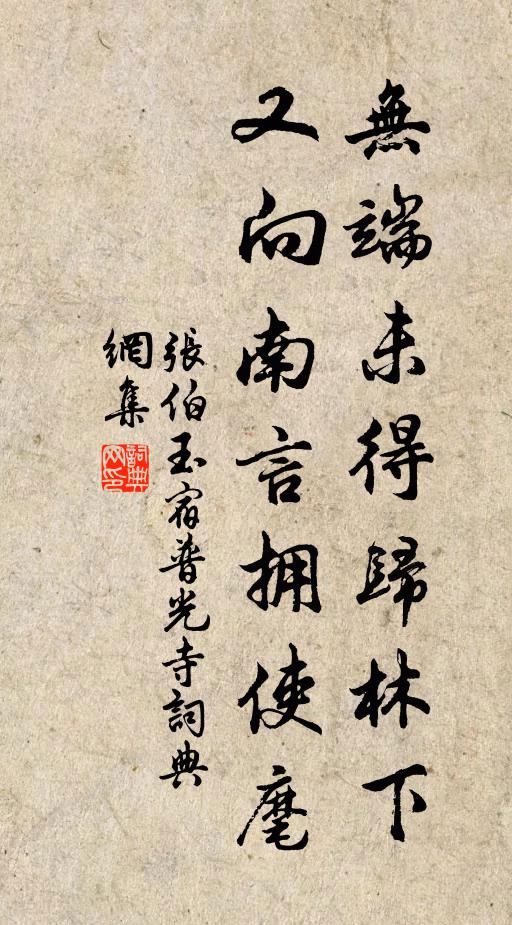 無端未得歸林下
又向南言拥使麾
張伯玉宿普光寺詞典
網集
詞典
网印